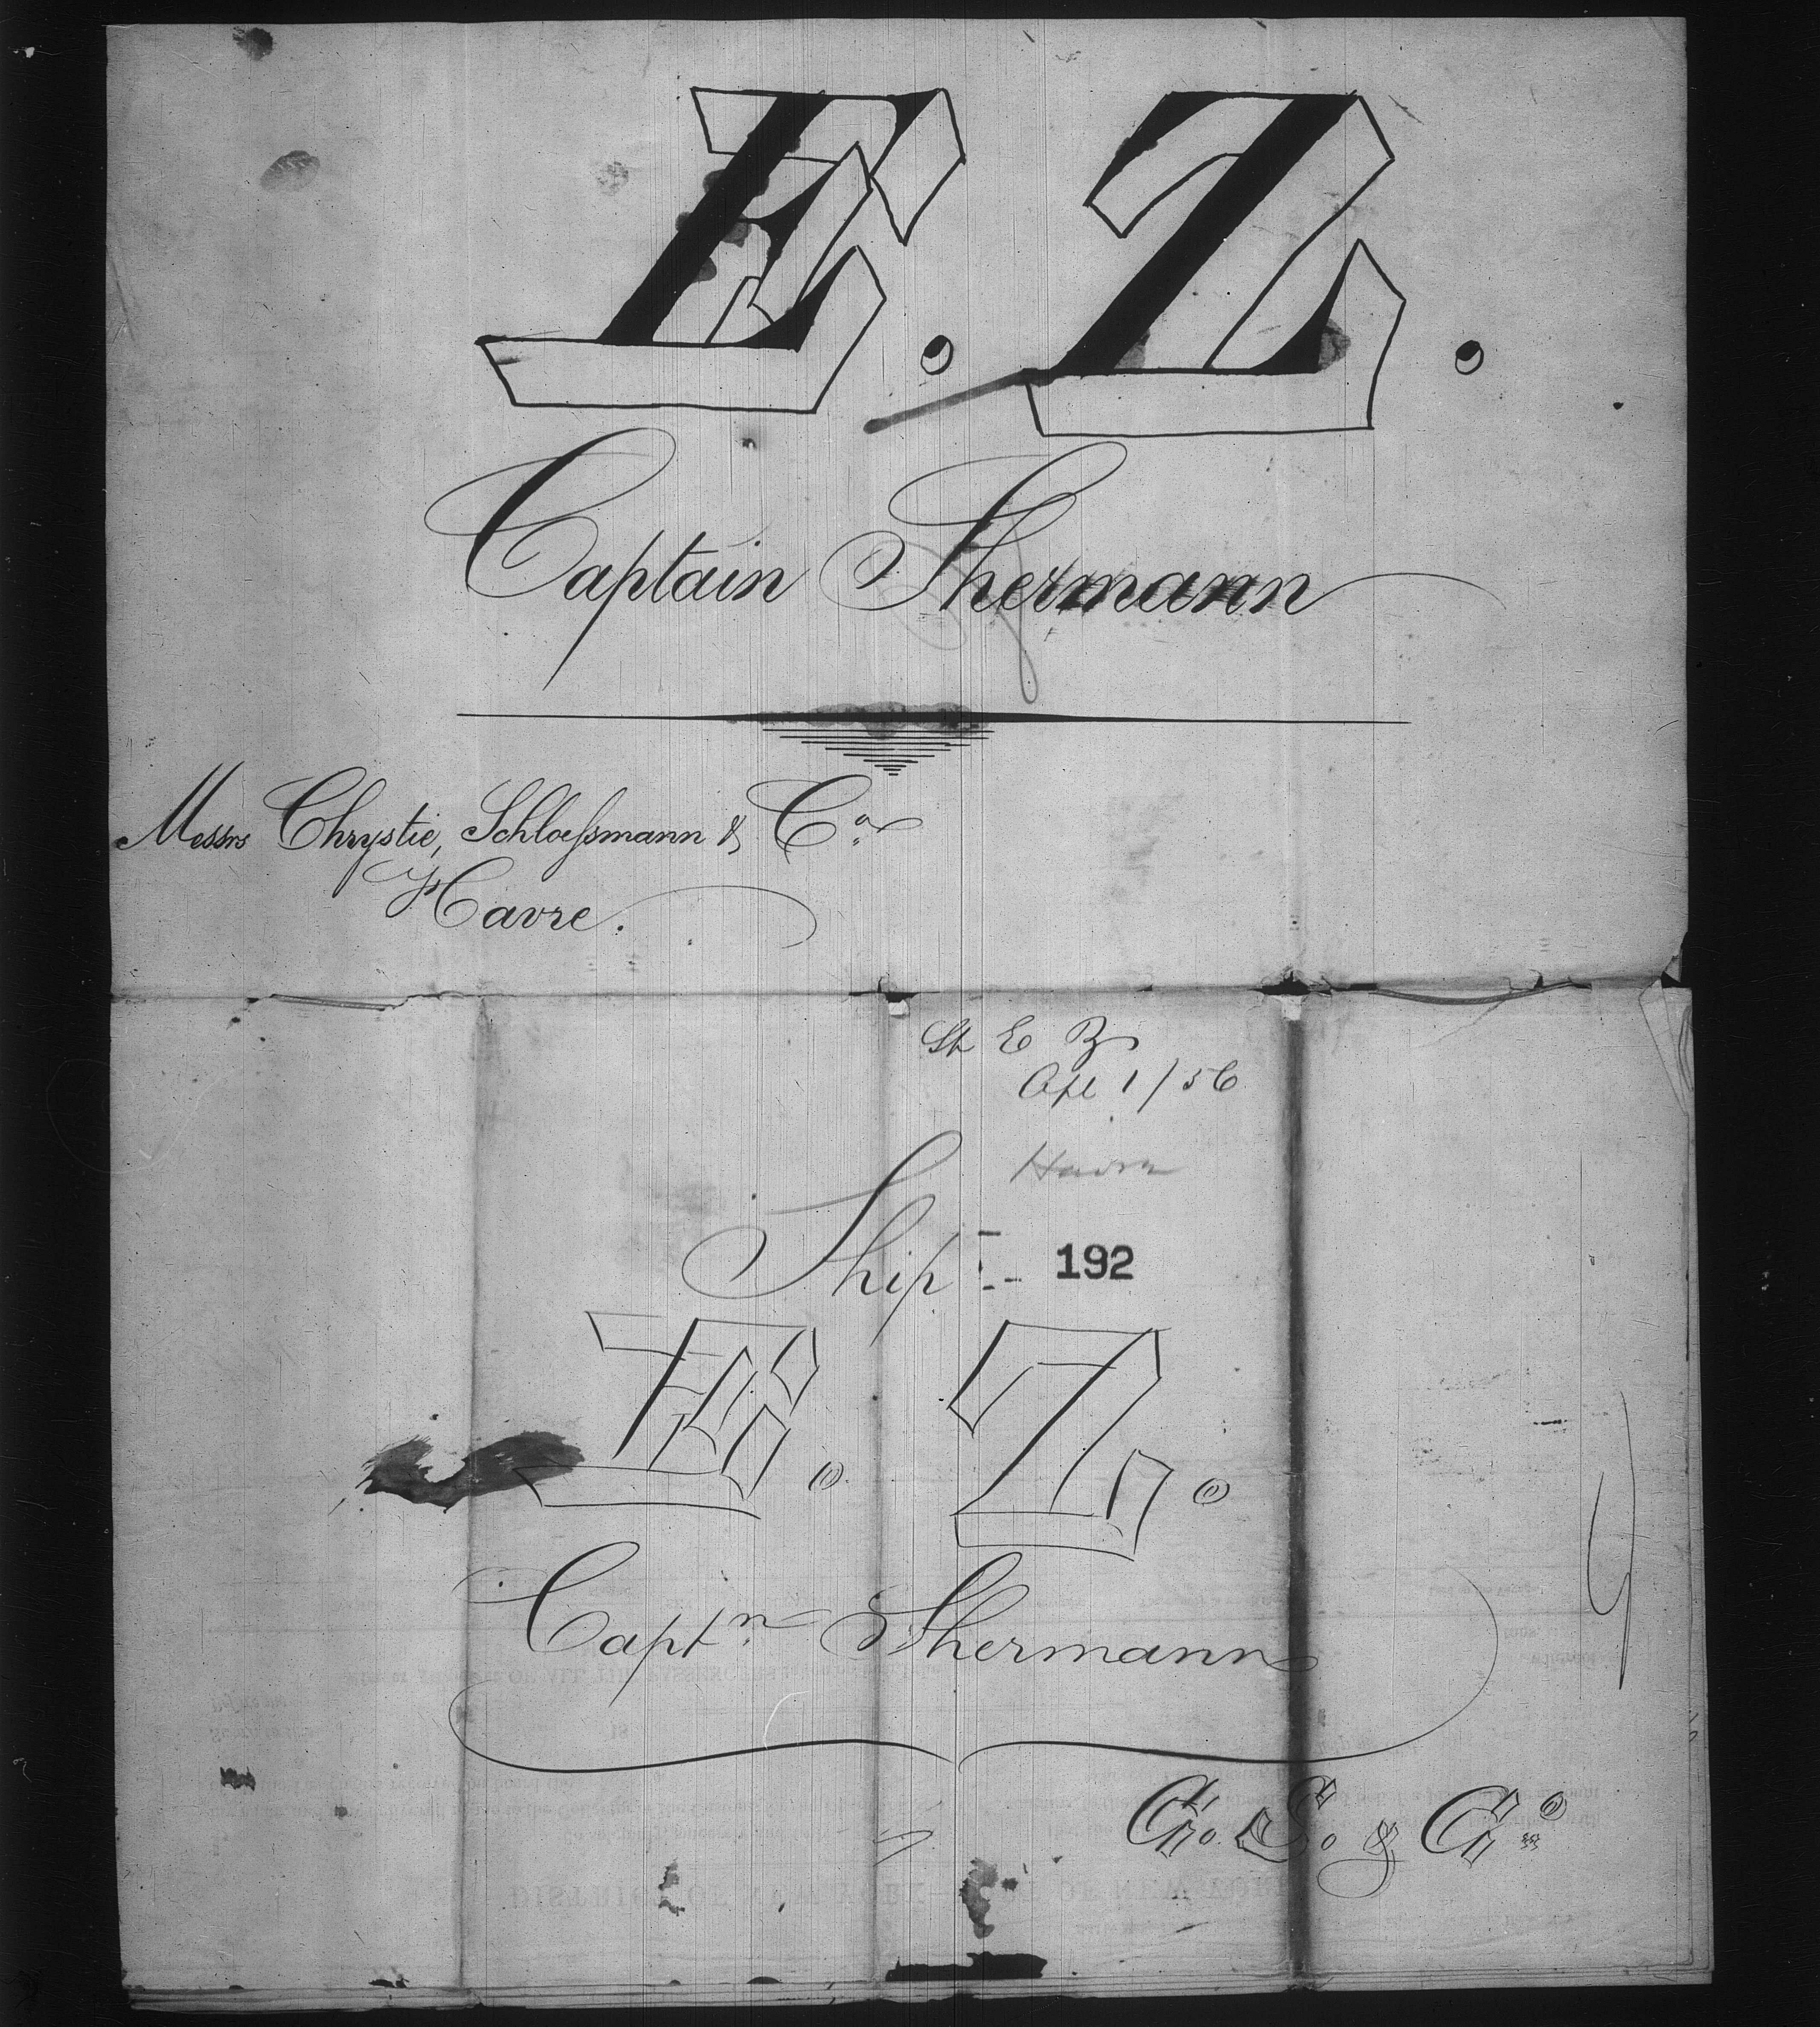 E. Z.
Captain Shermann
Messrs Chrystie, Schloessmann & Co.
Havre.
Sh E Z
Apl 1/56
Havre
Ship
192
E. Z.
Captn Shermann
C. S. & Co.